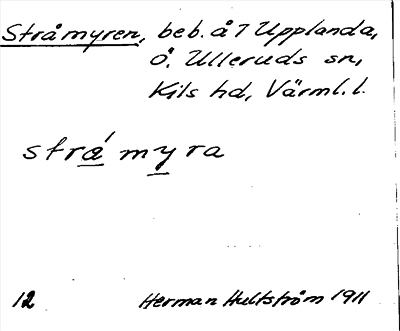 Stråmyren, beb. å 7 Upplanda,
Ö. Ulleruds sn,
Kils hd, Värml. l.
strá myra
12 Herman Hultström 1911